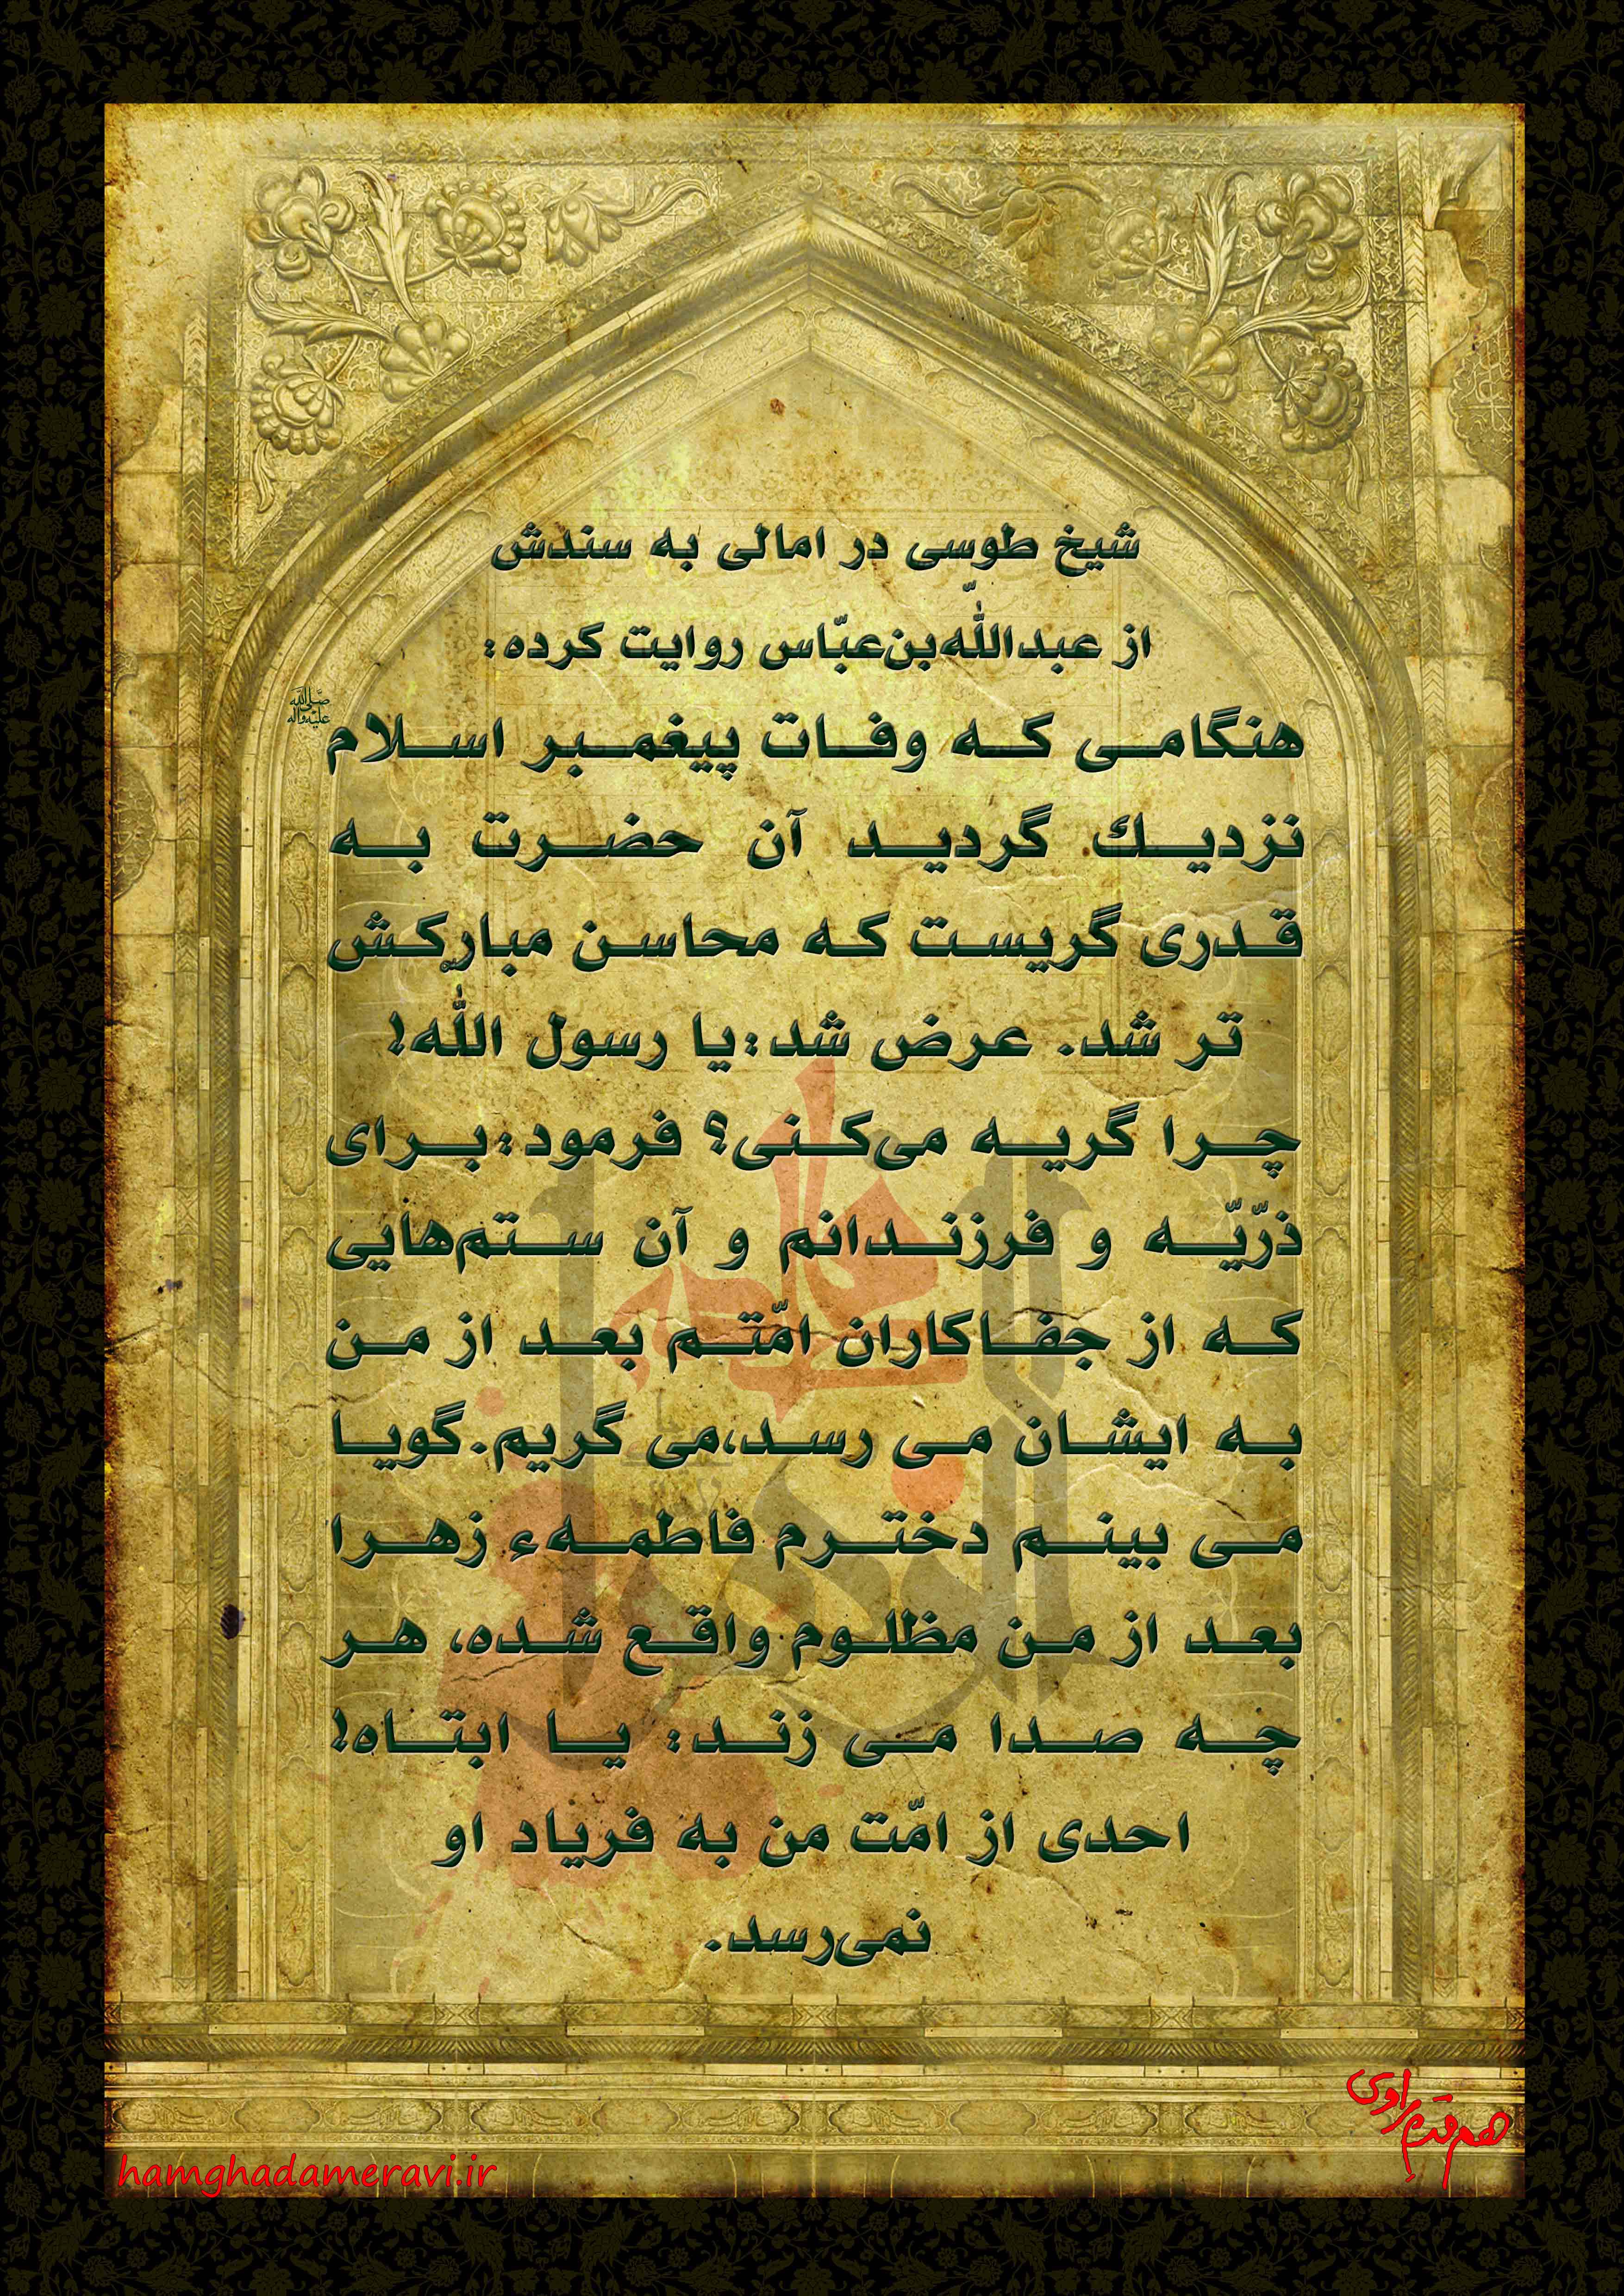 شیخ طوسی در امالی به سندش
از عبداللّٰه‌بن‌عبّاس روایت کرده:
هنگامی که وفات پیغمبر اسلام ﷺ
نزدیك گردید آن حضرت به
قدری گریست که محاسن مبارکش
تر شد. عرض شد:یا رسول اللّٰه!
چرا گریه می‌کنی؟ فرمود:برای
ذرّیّه و فرزندانم و آن ستم‌هایی
که از جفاکاران امّتم بعد از من
به ایشان می رسد،می گریم.گویا
می بینم دخترم فاطمهء زهرا
بعد از من مظلوم واقع شده، هر
چه صدا می زند: یا ابتاه!
احدی از امّت من به فریاد او
نمی‌رسد.
فاطمة
الزهرا
هم قدم راوی
hamghadameravi.ir